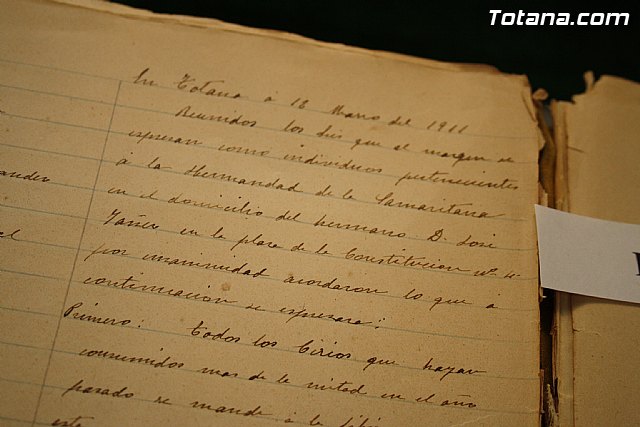 Totana.com
En Totana á 12 Marzo del 1911
Reunidos los Srs que al margen se
ander
espresan como individuos pertenecientes
á la Hermandad de la Samaritana
en el domicilio del hermano D. José
al
Yañez en la plaza de la Constitucion nº 4
por unanimidad acordaron lo que a
continuacion se espresara:
Primero: Todos los Cirios que hayan
consumidos mas de la mitad en el año
pasado se mande á la
este